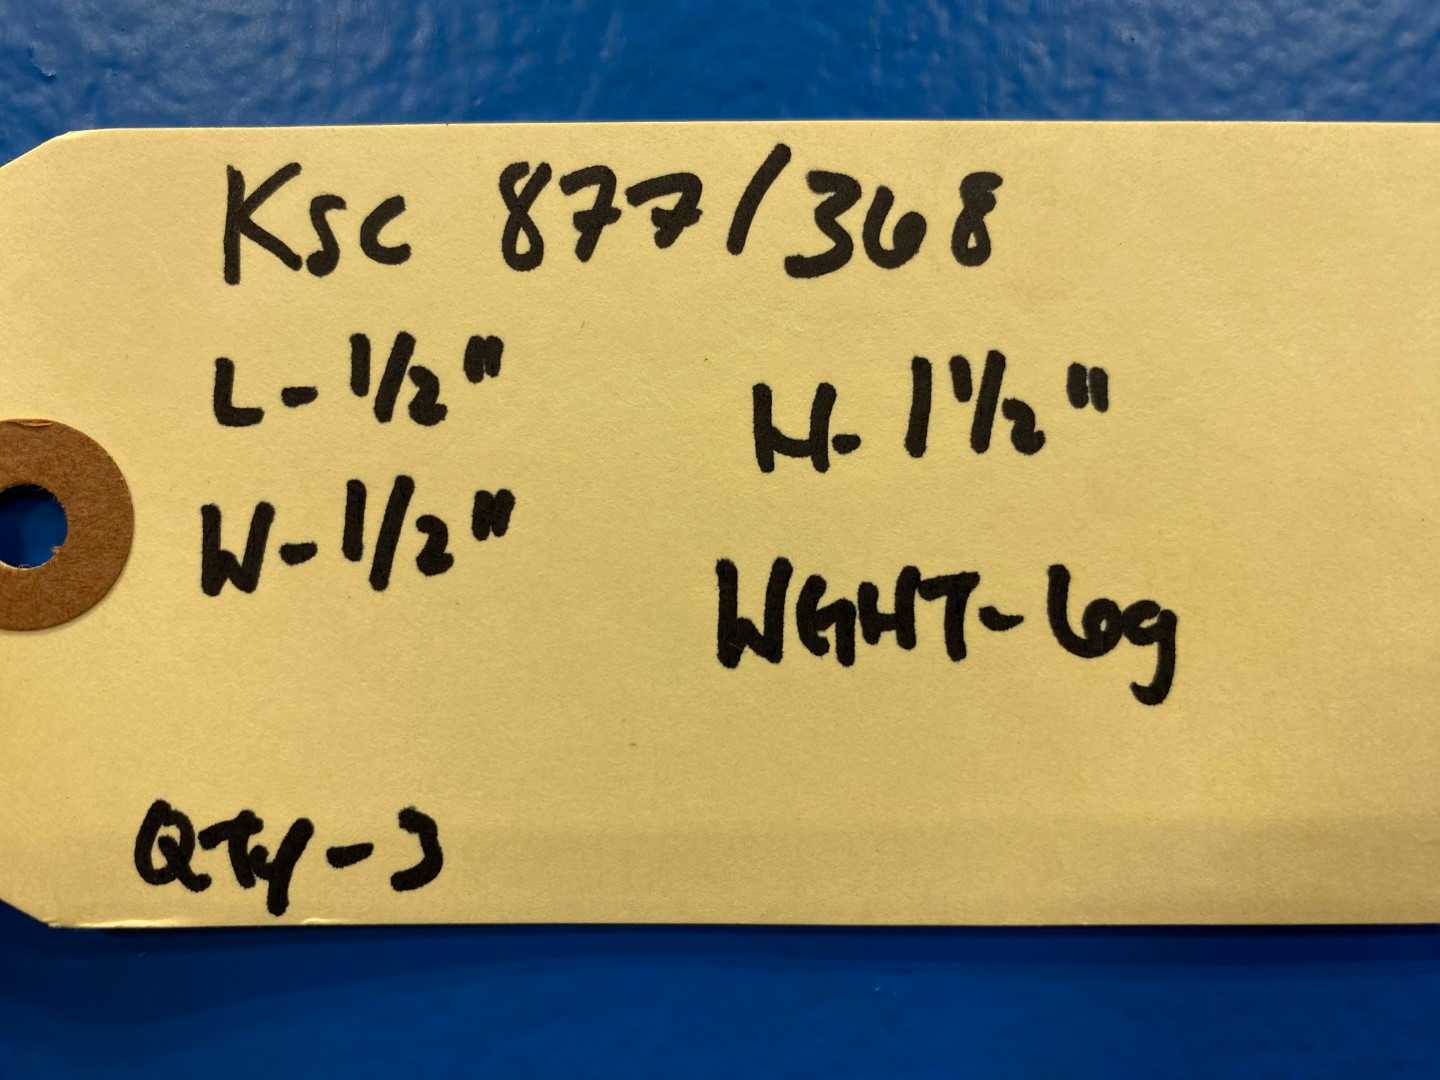 Ksc 877/368
L-1/2"
H-1 1/2"
W-1/2"
WGHT-6g
QTy-3